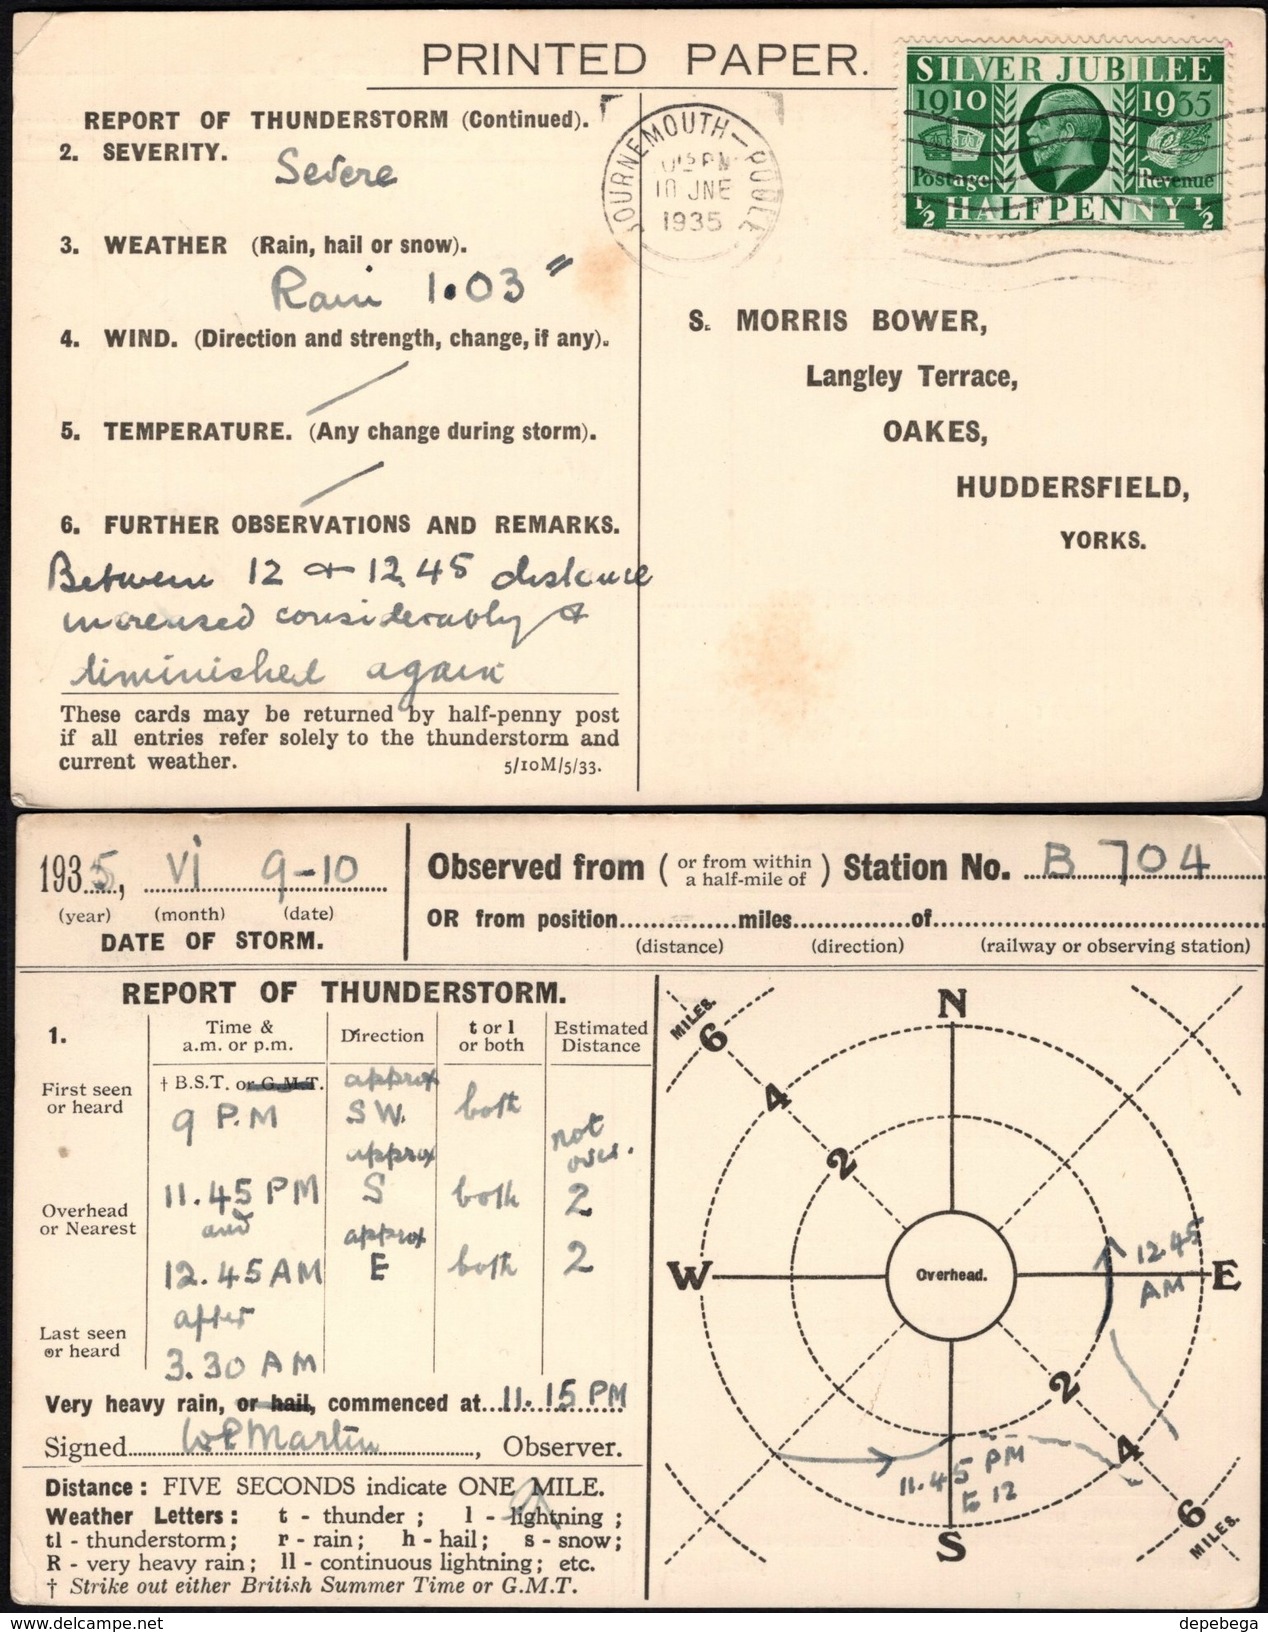 PRINTED PAPER.
SILVER JUBILEE
1910 1935
Postage Revenue
½ HALFPENNY ½
BOURNEMOUTH – POOLE
PM
10 JNE
1935
REPORT OF THUNDERSTORM (Continued).
2. SEVERITY.
Severe
3. WEATHER (Rain, hail or snow).
Rain 1.03"
4. WIND. (Direction and strength, change, if any).
/
5. TEMPERATURE. (Any change during storm).
/
6. FURTHER OBSERVATIONS AND REMARKS.
Between 12 & 12.45 distance
increased considerably &
diminished again
These cards may be returned by half-penny post
if all entries refer solely to the thunderstorm and
current weather.
5/10M/5/33.
S. MORRIS BOWER,
Langley Terrace,
OAKES,
HUDDERSFIELD,
YORKS.
1935, VI 9-10
(year) (month) (date)
DATE OF STORM.
Observed from ( or from within a half-mile of ) Station No. B 704
OR from position............miles............of............
(distance) (direction) (railway or observing station)
REPORT OF THUNDERSTORM.
1. Time & a.m. or p.m. Direction t or l or both Estimated Distance
† B.S.T. or G.M.T.
First seen or heard 9 P.M approx SW. both not obs.
Overhead or Nearest 11.45 PM approx S both 2
and
12.45 AM approx E both 2
Last seen or heard after 3.30 AM
Very heavy rain, or hail, commenced at 11.15 PM
Signed W E Martin, Observer.
Distance: FIVE SECONDS indicate ONE MILE.
Weather Letters: t - thunder; l - lightning;
tl - thunderstorm; r - rain; h - hail; s - snow;
R - very heavy rain; ll - continuous lightning; etc.
† Strike out either British Summer Time or G.M.T.
N
MILES.
6
4
2
W
Overhead.
E
12.45
AM
2
4
6
MILES.
11.45 PM
to 12
S
www.delcampe.net
depebega